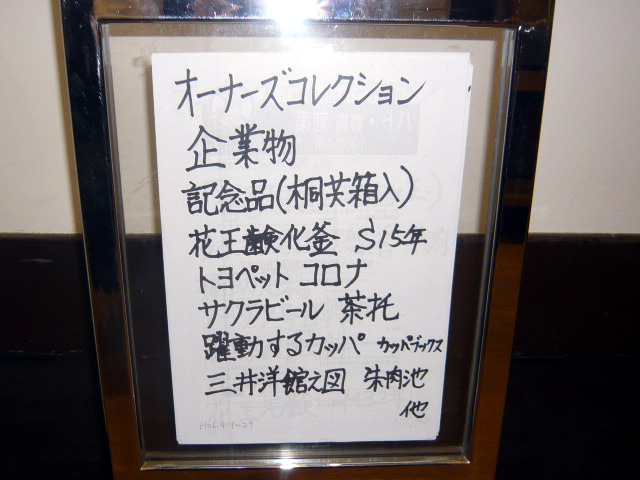 オーナーズコレクション
企業物
記念品(桐共箱入)
花王鹸化釜 S15年
トヨペット コロナ
サクラビール 茶托
躍動するカッパ カッパブックス
三井洋館之図 朱肉池
他
H26.4.1~29